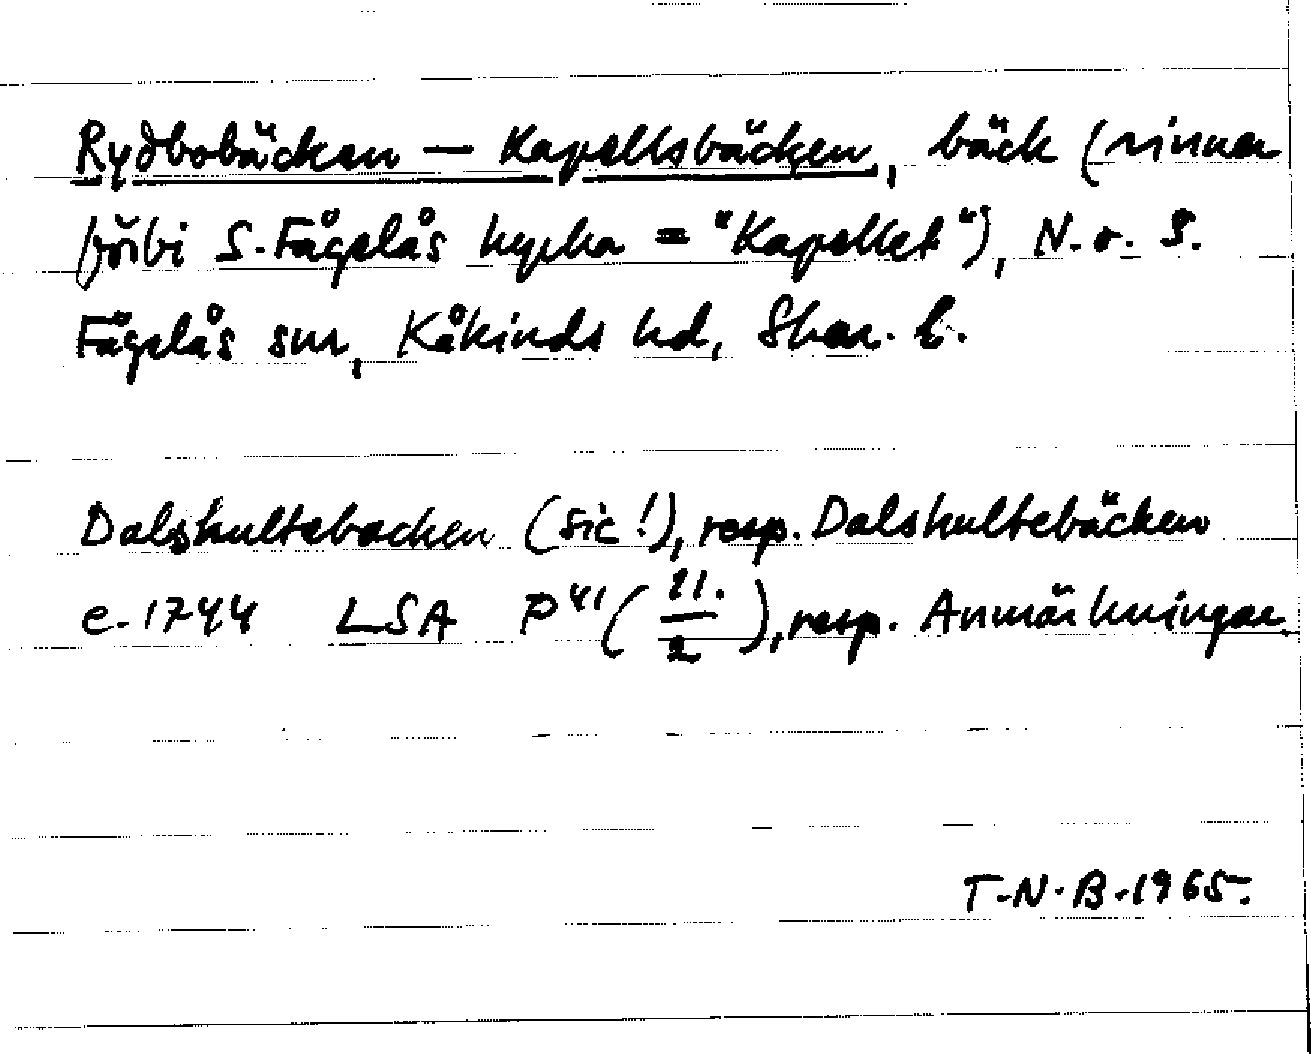 Rydbobäcken — Kapellsbäcken, bäck (rinner
förbi S. Fågelås kyrka = "Kapellet"), N. o. S.
Fågelås snr, Kåkinds hd, Skar. l.
Dalshultebacken (sic!), resp. Dalshultebäcken
e. 1744 LSA P 41 (11./2), resp. Anmärkningar.
T. N. B. 1965.